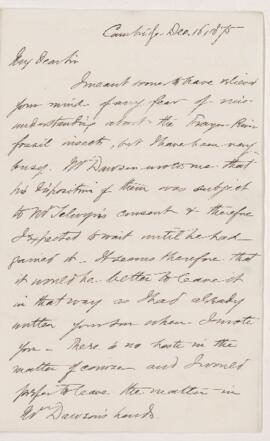 Cambridge Dec. 16, 1875
My Dear Sir
I meant sooner to have relieved
your mind of any fear of mis-
understanding about the Fraser River
fossil insects, but I have been very
busy. Mr Dawson wrote me that
his disposition of them was subject
to Mr Selwyn's consent & therefore
I expected to wait until he had
gained it. It seems therefore that
it would be better to leave it
in that way as I had already
written your son when I wrote
you — There is no haste in the
matter of course and I would
prefer to leave the matter in
Mr Dawson's hands.